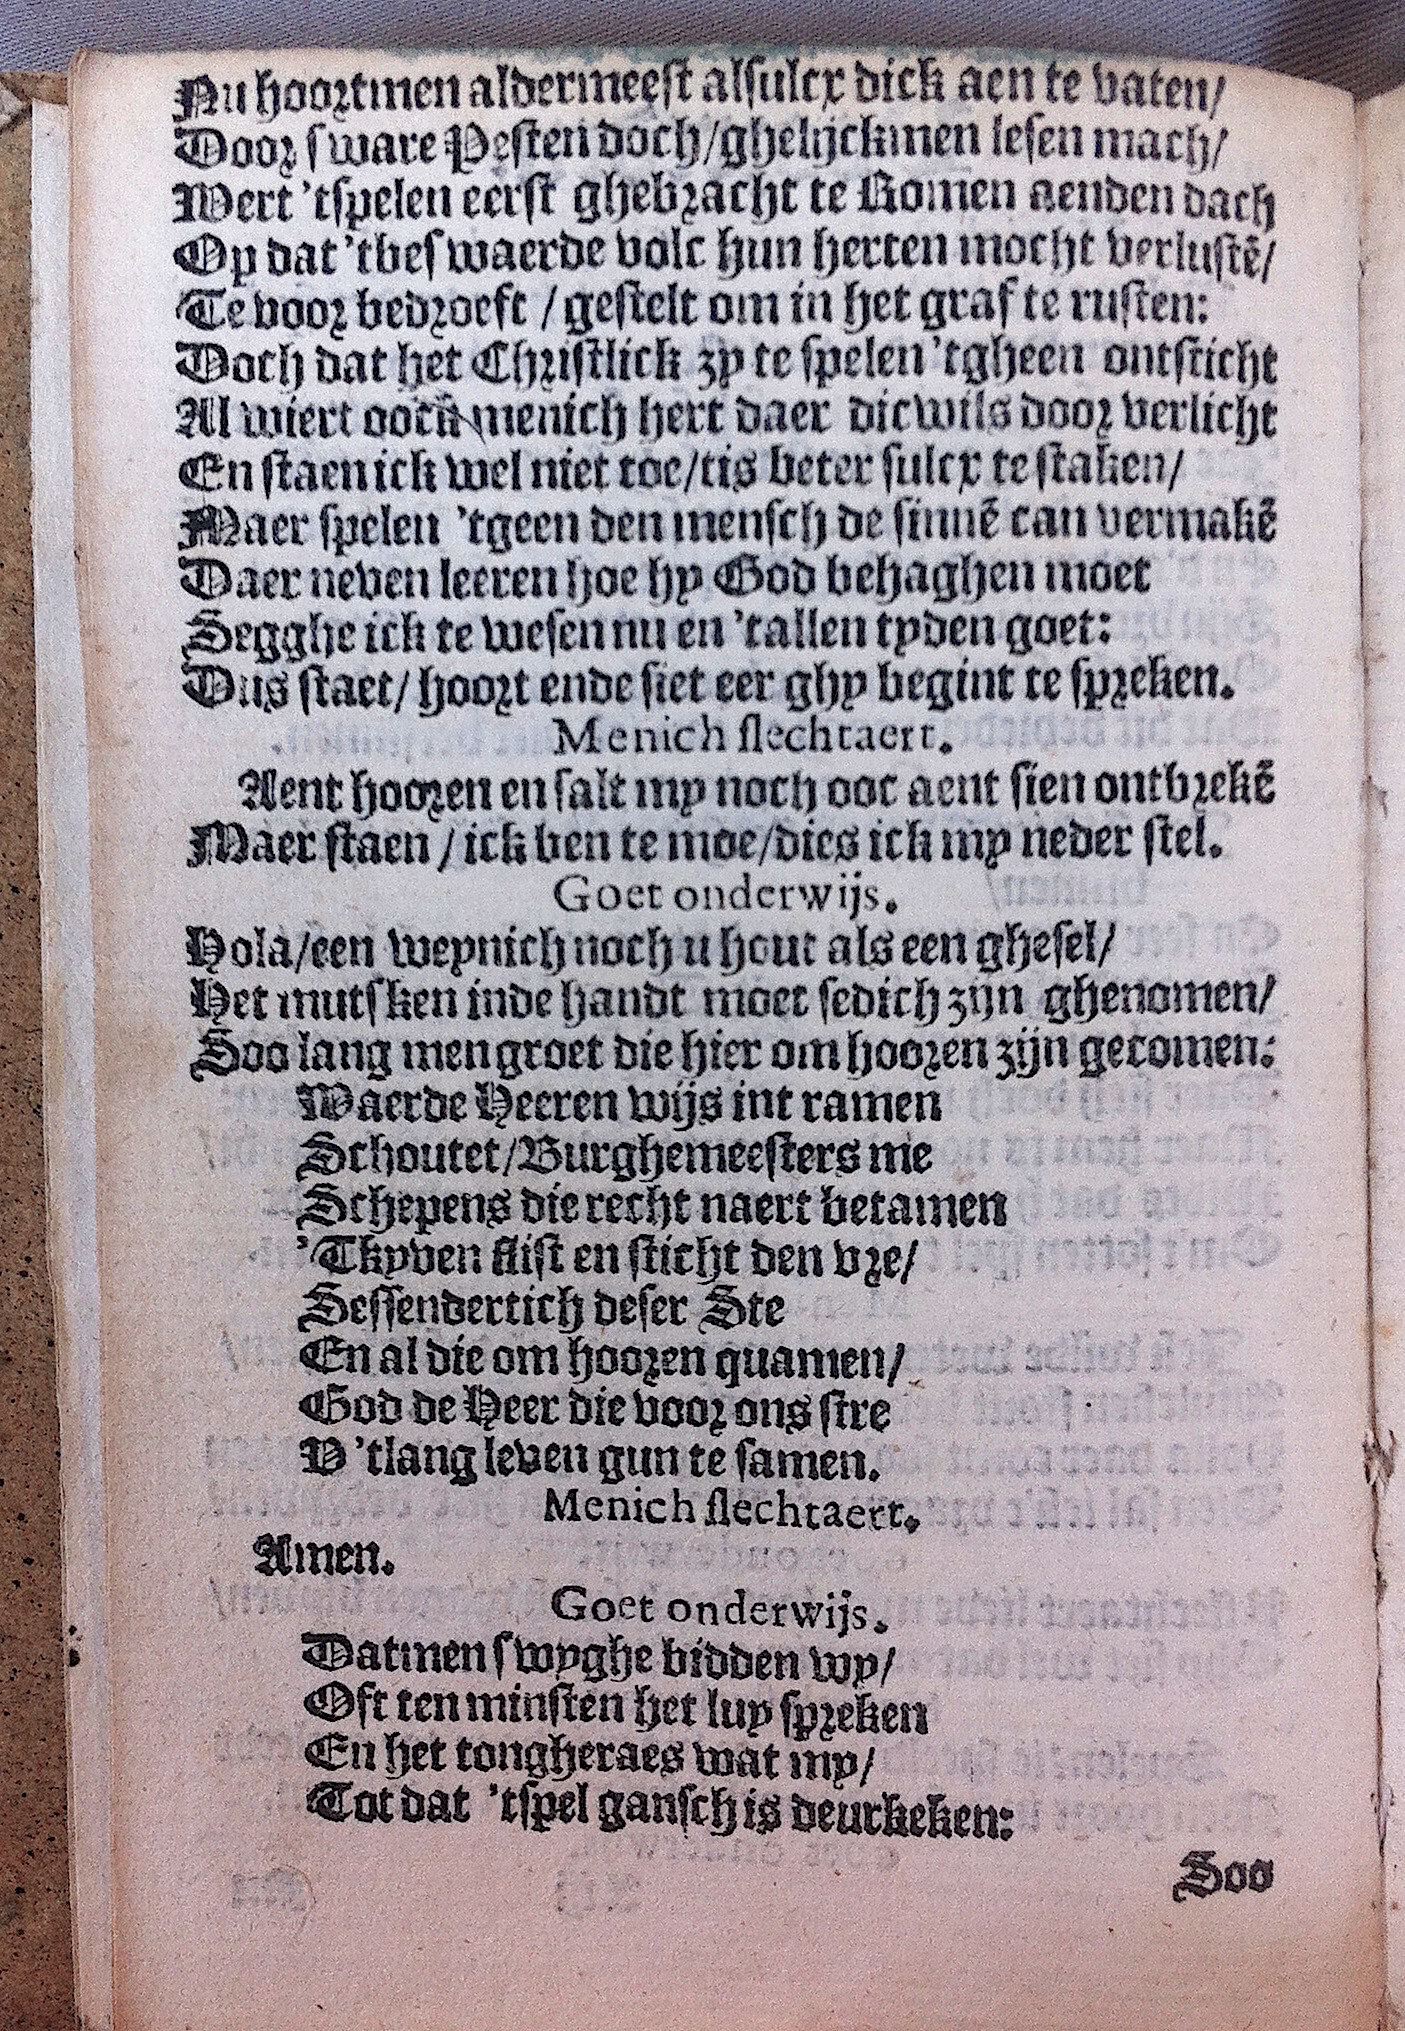 Nu hoortmen aldermeest alsulcx dick aen te vaten/
Door sware Pesten doch/ghelijckmen lesen mach/
Wert 'tspelen eerst ghebracht te Romen aenden dach
Op dat 'tbeswaerde volc hun herten mocht verlustē/
Te voor bedroeft / gestelt om in het graf te rusten:
Doch dat het Christlick zy te spelen 'tgheen ontsticht
Al wiert oock menich hert daer dicwils door verlicht
En staen ick wel niet toe/tis beter sulcx te staken/
Maer spelen 'tgeen den mensch de sinnē can vermakē
Daer neven leeren hoe hy God behaghen moet
Segghe ick te wesen nu en 'tallen tyden goet:
Dus staet/ hoort ende siet eer ghy begint te spreken.
Menich slechtaert.
Aent hooren en salt my noch ooc aent sien ontbrekē
Maer staen / ick ben te moe/dies ick my neder stel.
Goet onderwijs.
Hola/een weynich noch u hout als een ghesel/
Het mutsken inde handt moet sedich zijn ghenomen/
Soo lang men groet die hier om hooren zijn gecomen:
Waerde Heeren wijs int ramen
Schoutet/Burghemeesters me
Schepens die recht naert betamen
'Tkyven slist en sticht den vre/
Sessendertich deser Ste
En al die om hooren quamen/
God de Heer die voor ons stre
V 'tlang leven gun te samen.
Menich slechtaert.
Amen.
Goet onderwijs.
Datmen swyghe bidden wy/
Oft ten minsten het luy spreken
En het tongheraes wat my/
Tot dat 'tspel gansch is deurkeken:
Soo